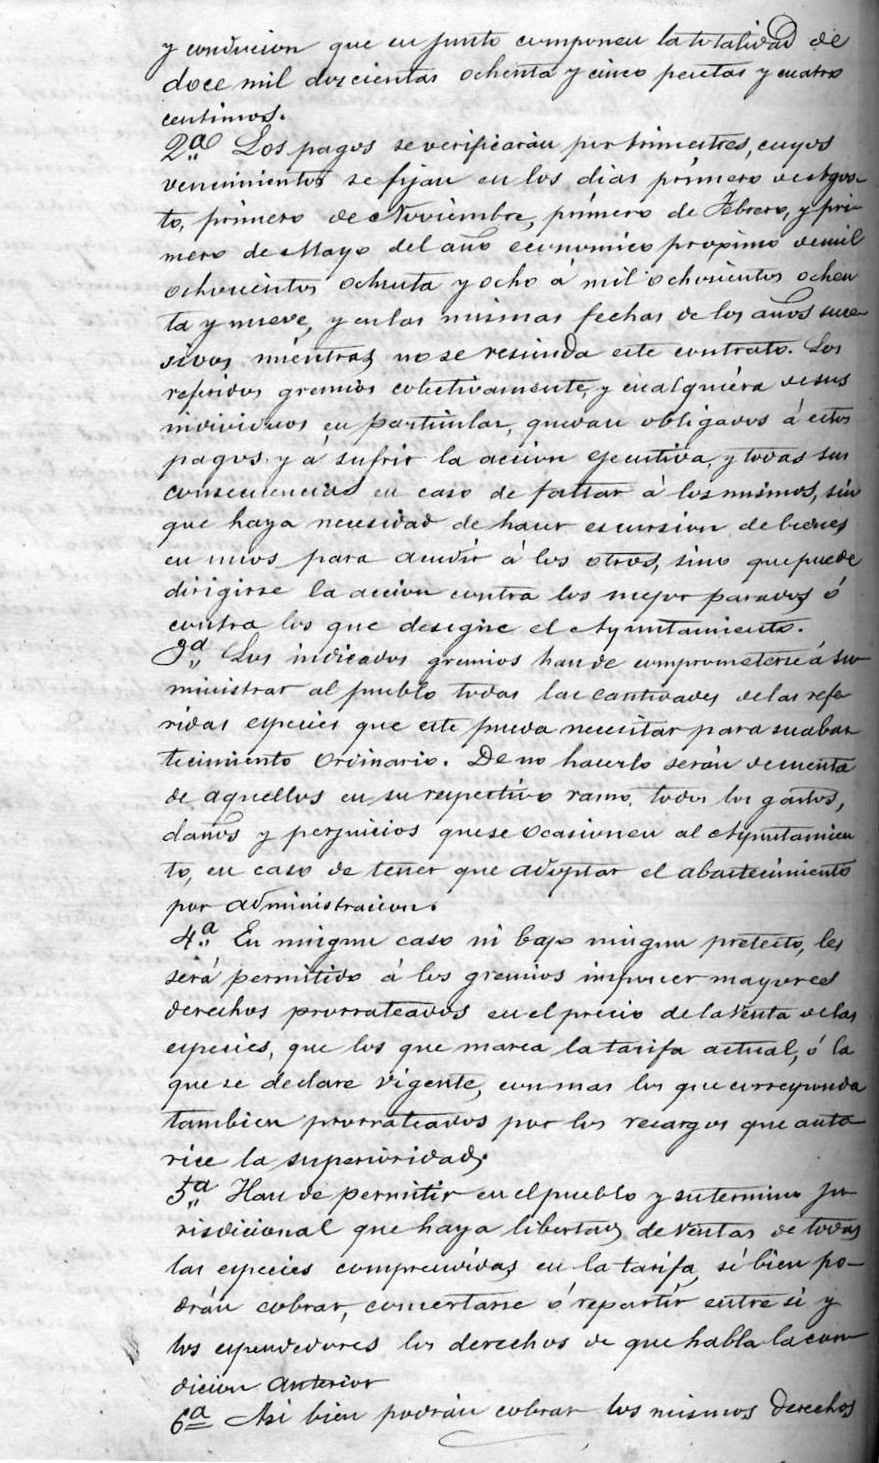 y condicion que en junto componen la totalidad de
doce mil doscientas ochenta y cinco pesetas y cuatro
centimos.
2ª Los pagos se verificarán por trimestres, cuyos
vencimientos se fijan en los dias primero de Agos-
to, primero de Noviembre, primero de Febrero, y pri
mero de Mayo del año economico proximo de mil
ochocientos ochenta y ocho á mil ochocientos ochen
ta y nueve, y en las mismas fechas de los años suce
sivos, mientras no se rescinda este contrato. Los
referidos gremios colectivamente, y cualquiera de sus
individuos en particular, quedan obligados á estos
pagos y á sufrir la accion ejecutiva, y todas sus
consecuencias en caso de faltar á los mismos, sin
que haya necesidad de hacer escursion de bienes
en unos para acudir á los otros, sino que puede
dirigirse la accion contra los mejor parados, ó
contra los que designe el Ayuntamiento.
3ª Los indicados gremios han de comprometerse á su-
ministrar al pueblo todas las cantidades de las refe
ridas especies que este pueda necesitar para su abas
tecimiento ordinario. De no hacerlo serán de cuenta
de aquellos en su respectivo ramo, todos los gastos,
daños y perjuicios que se ocasionen al Ayuntamien
to, en caso de tener que adoptar el abastecimiento
por administracion.
4ª En ningun caso ni bajo ningun pretesto, les
será permitido á los gremios imponer mayores
derechos prorrateados en el precio de la venta de las
especies, que los que marca la tarifa actual, ó la
que se declare vigente, con mas los que corresponda
tambien prorrateados por los recargos que auto
rice la superioridad.
5ª Han de permitir en el pueblo y su termino ju-
risdicional que haya libertad de ventas de todas
las especies comprendidas en la tarifa, si bien po-
drán cobrar, concertarse ó repartir entre si y
los espendedores los derechos de que habla la con
dicion anterior
6ª Asi bien podrán cobrar los mismos derechos